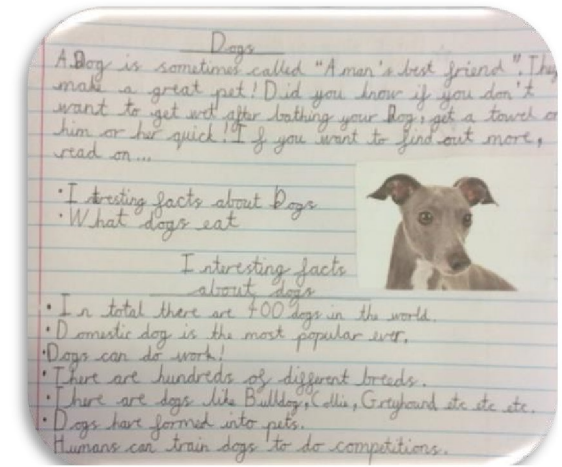 Dogs
A Dog is sometimes called "A man's best friend". They
make a great pet! Did you know if you don't
want to get wet after bathing your Dog, get a towel on
him or her quick! If you want to find out more,
read on...
•Itresting facts about Dogs
•What dogs eat
Interesting facts
about dogs
•In total there are 400 dogs in the world.
•Domestic dog is the most popular ever.
•Dogs can do work!
•There are hundreds of different breeds.
•There are dogs like Bulldog, Collie, Greyhound etc etc etc.
•Dogs have formed into pets.
•Humans can train dogs to do competitions.